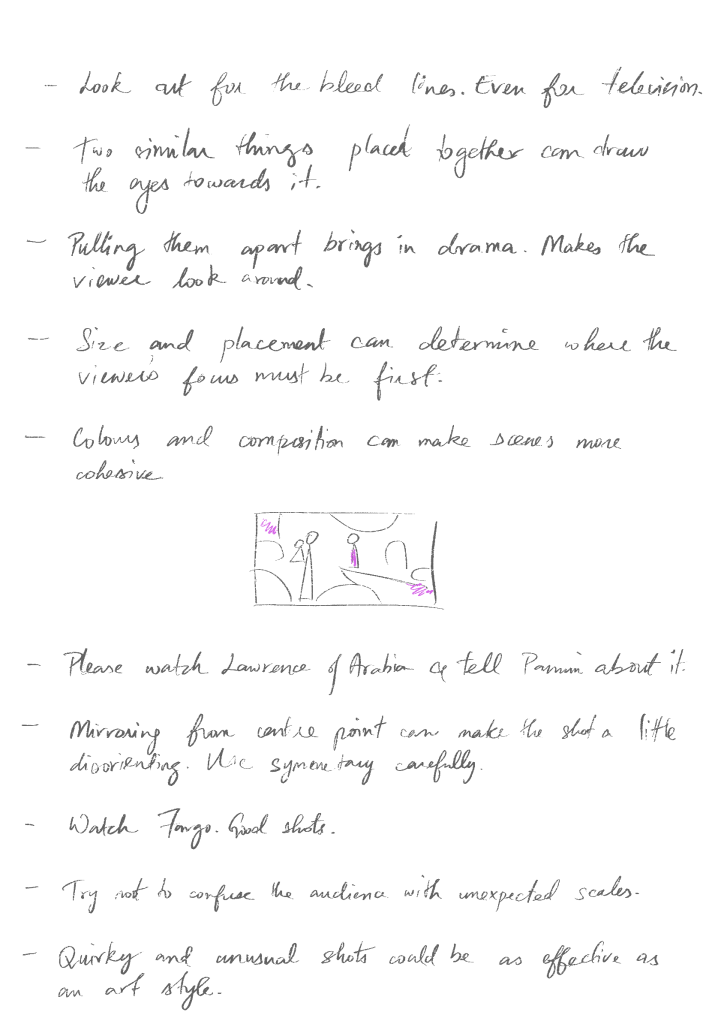 - Look out for the bleed lines. Even for television.
- Two similar things placed together can draw
the eyes towards it.
- Pulling them apart brings in drama. Makes the
viewer look around.
- Size and placement can determine where the
viewer's focus must be first.
- Colours and composition can make scenes more
cohesive
- Please watch Lawrence of Arabia & tell about it.
- Mirroring from centre point can make the shot a little
disorienting. Use symmetary carefully.
- Watch Fargo. Good shots.
- Try not to confuse the audience with unexpected scales.
- Quirky and unusual shots could be as effective as
an art style.